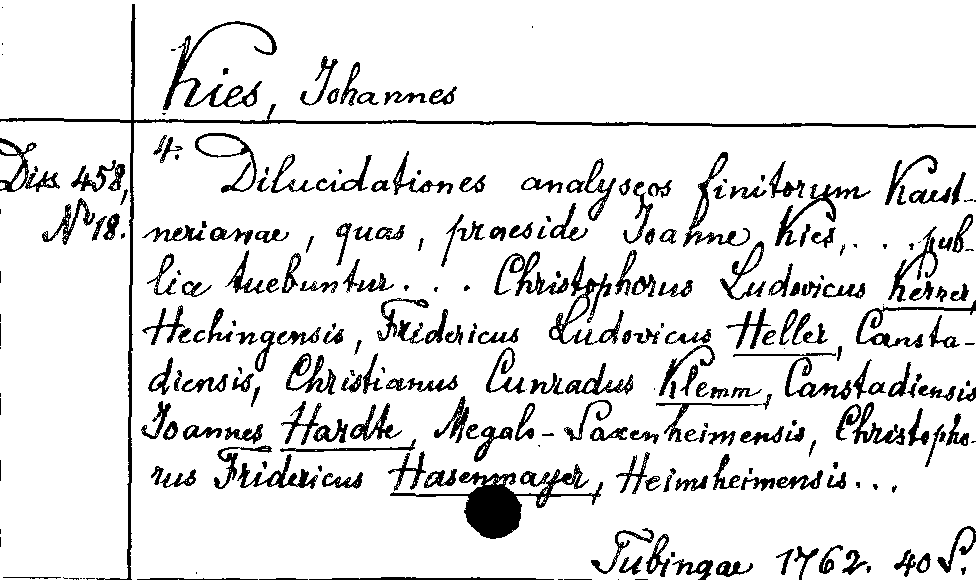 Kies, Johannes
Diss. 458,
No 18.
4.
Dilucidationes analyseos finitorum Kaest-
nerianae, quas, praeside Ioanne Kies, . . . pub-
lice tuebuntur . . . Christophorus Ludovicus Kerner,
Hechingensis, Fridericus Ludovicus Heller, Cansta-
diensis, Christianus Cunradus Klemm, Canstadiensis
Ioannes Hardte, Megalo-Saxenheimensis, Christopho-
rus Fridericus Hasenmayer, Heimsheimensis . . .
Tubingae 1762. 40 S.